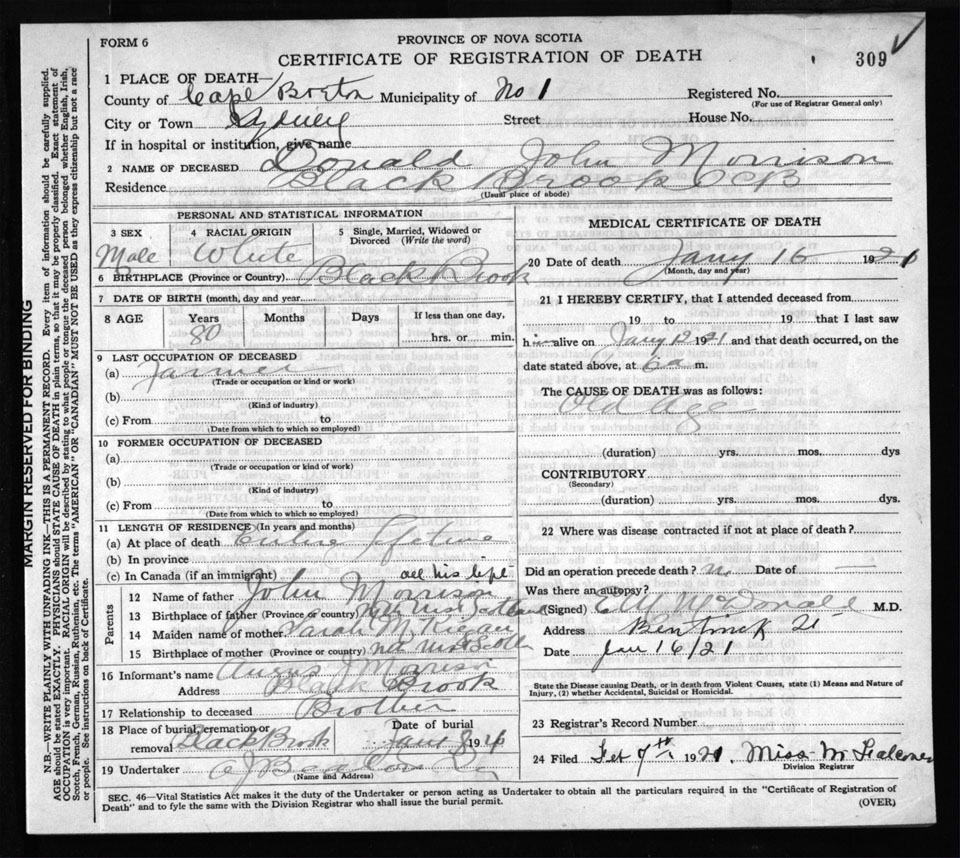 FORM 6
PROVINCE OF NOVA SCOTIA
CERTIFICATE OF REGISTRATION OF DEATH
309
1 PLACE OF DEATH—
County of Cape Breton Municipality of No 1 Registered No.
(For use of Registrar General only)
City or Town Sydney Street House No.
If in hospital or institution, give name
2 NAME OF DECEASED Donald John Morrison
Residence Black Brook CB
(Usual place of abode)
PERSONAL AND STATISTICAL INFORMATION
3 SEX 4 RACIAL ORIGIN 5 Single, Married, Widowed or Divorced (Write the word)
Male White
6 BIRTHPLACE (Province or Country) Black Brook
7 DATE OF BIRTH (month, day and year)
8 AGE Years Months Days If less than one day,
80 hrs. or min.
9 LAST OCCUPATION OF DECEASED
(a) Farmer
(Trade or occupation or kind or work)
(b)
(Kind of industry)
(c) From to
(Date from which to which so employed)
10 FORMER OCCUPATION OF DECEASED
(a)
(Trade or occupation or kind of work)
(b)
(Kind of industry)
(c) From to
(Date from which to which so employed)
11 LENGTH OF RESIDENCE (In years and months)
(a) At place of death Entire lifetime
(b) In province
(c) In Canada (if an immigrant) all his life
Parents
12 Name of father John Morrison
13 Birthplace of father (Province or country)
14 Maiden name of mother Sarah
15 Birthplace of mother (Province or country)
16 Informant's name Angus J
Address Black Brook
17 Relationship to deceased Brother
18 Place of burial, cremation or removal Black Brook Date of burial
19 Undertaker
(Name and Address)
MEDICAL CERTIFICATE OF DEATH
20 Date of death Jany 16 1921
(Month, day and year)
21 I HEREBY CERTIFY, that I attended deceased from
19 to 19 that I last saw
him alive on Jany 1921 and that death occurred, on the
date stated above, at 6 a m.
The CAUSE OF DEATH was as follows:
Old Age
(duration) yrs. mos. dys
CONTRIBUTORY
(Secondary)
(duration) yrs. mos. dys.
22 Where was disease contracted if not at place of death?
Did an operation precede death? No Date of —
Was there an autopsy?
(Signed) McDonald M.D.
Address Bentinck St
Date Jan 16/21
State the Disease causing Death, or in death from Violent Causes, state (1) Means and Nature of Injury, (2) whether Accidental, Suicidal or Homicidal.
23 Registrar's Record Number
24 Filed Feb 7th 1921 Miss M Falconer
Division Registrar
SEC. 46—Vital Statistics Act makes it the duty of the Undertaker or person acting as Undertaker to obtain all the particulars required in the "Certificate of Registration of
Death" and to fyle the same with the Division Registrar who shall issue the burial permit. (OVER)
MARGIN RESERVED FOR BINDING
N.B.—WRITE PLAINLY WITH UNFADING INK—THIS IS A PERMANENT RECORD. Every item of information should be carefully supplied.
AGE should be stated EXACTLY. PHYSICIANS should STATE CAUSE OF DEATH in plain terms, so that it may be properly classified. Exact statement of
OCCUPATION is very important. RACIAL ORIGIN will be described by stating to what people or tongue the deceased person belonged whether English, Irish,
Scotch, French, German, Russian, Ruthenian, etc. The terms "AMERICAN" OR "CANADIAN" MUST NOT BE USED as they express citizenship but not a race
or people. See instructions on back of Certificate.